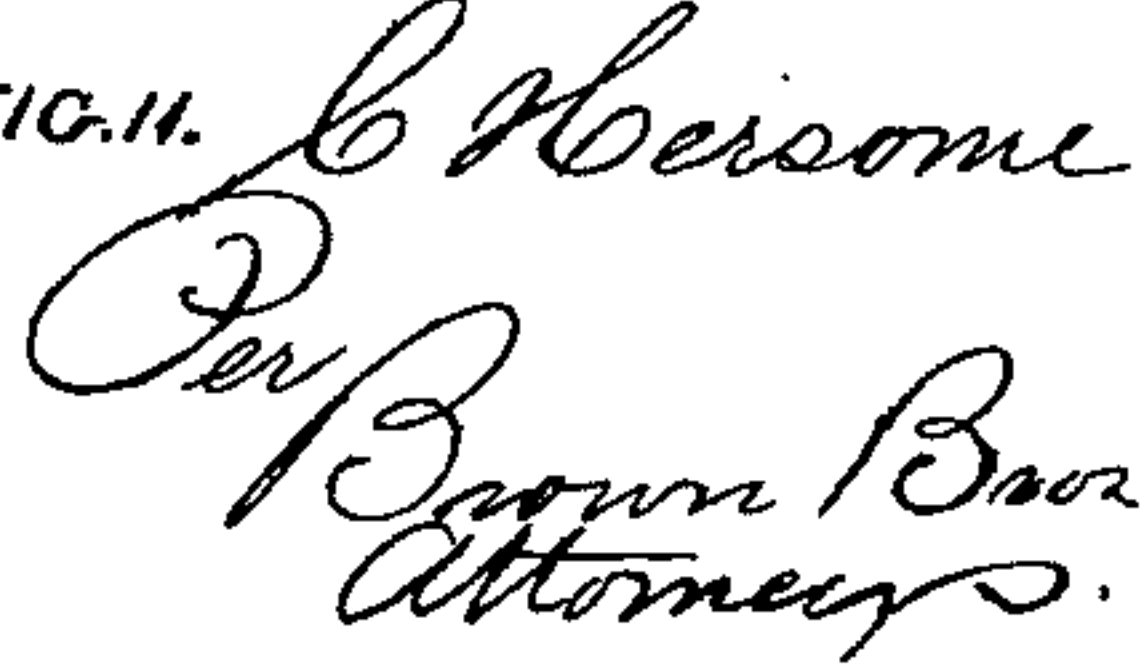 FIG. 11.
C Hersome
Per
Brown Bros
Attorneys.